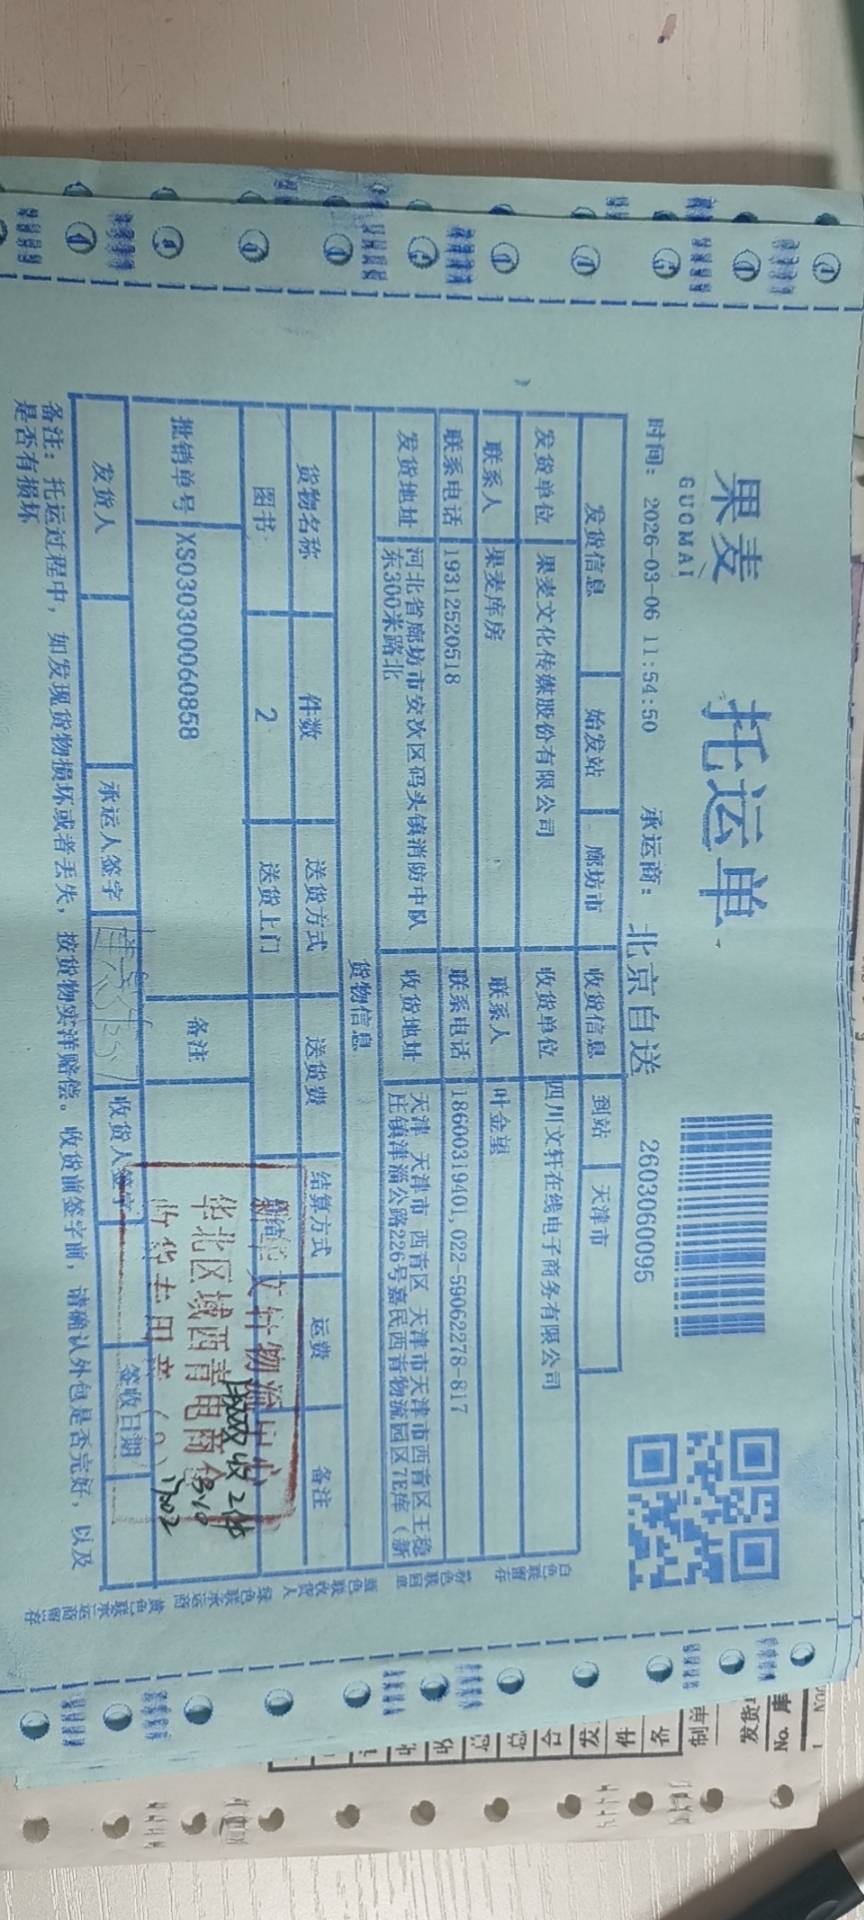 果麦
GUOMAI
托运单
时间： 2026-03-06 11:54:50 承运商： 北京自送 2603060095
发货信息 始发站 廊坊市 收货信息 到站 天津市
发货单位 果麦文化传媒股份有限公司 收货单位 四川文轩在线电子商务有限公司
联系人 果麦库房 联系人 叶金望
联系电话 19312520518 联系电话 18600319401,022-59062278-817
发货地址 河北省廊坊市安次区码头镇消防中队东300米路北 收货地址 天津 天津市 西青区 天津市天津市西青区王稳庄镇津淄公路226号嘉民西青物流园区7E库（新
货物信息
货物名称 件数 送货方式 送货费 结算方式 运费 备注
图书 2 送货上门
批销单号 XS030300060858 备注
发货人 承运人签字 收货人签字 签收日期
备注： 托运过程中，如发现货物损坏或者丢失，按货物实洋赔偿。收货前签字前，请确认外包是否完好，以及
是否有损坏
华北区域西青电商仓
收货专用章
收2件
3.10
白色联留存
粉色联回单
蓝色联收货人
绿色联承运商
黄色联承运商留存
制单
发货
No.